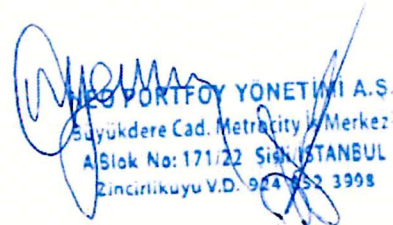 NEO PORTFÖY YÖNETİMİ A.Ş.
Büyükdere Cad. Metrocity İş Merkezi
A Blok No: 171/22 Şişli/İSTANBUL
Zincirlikuyu V.D. 924 3998